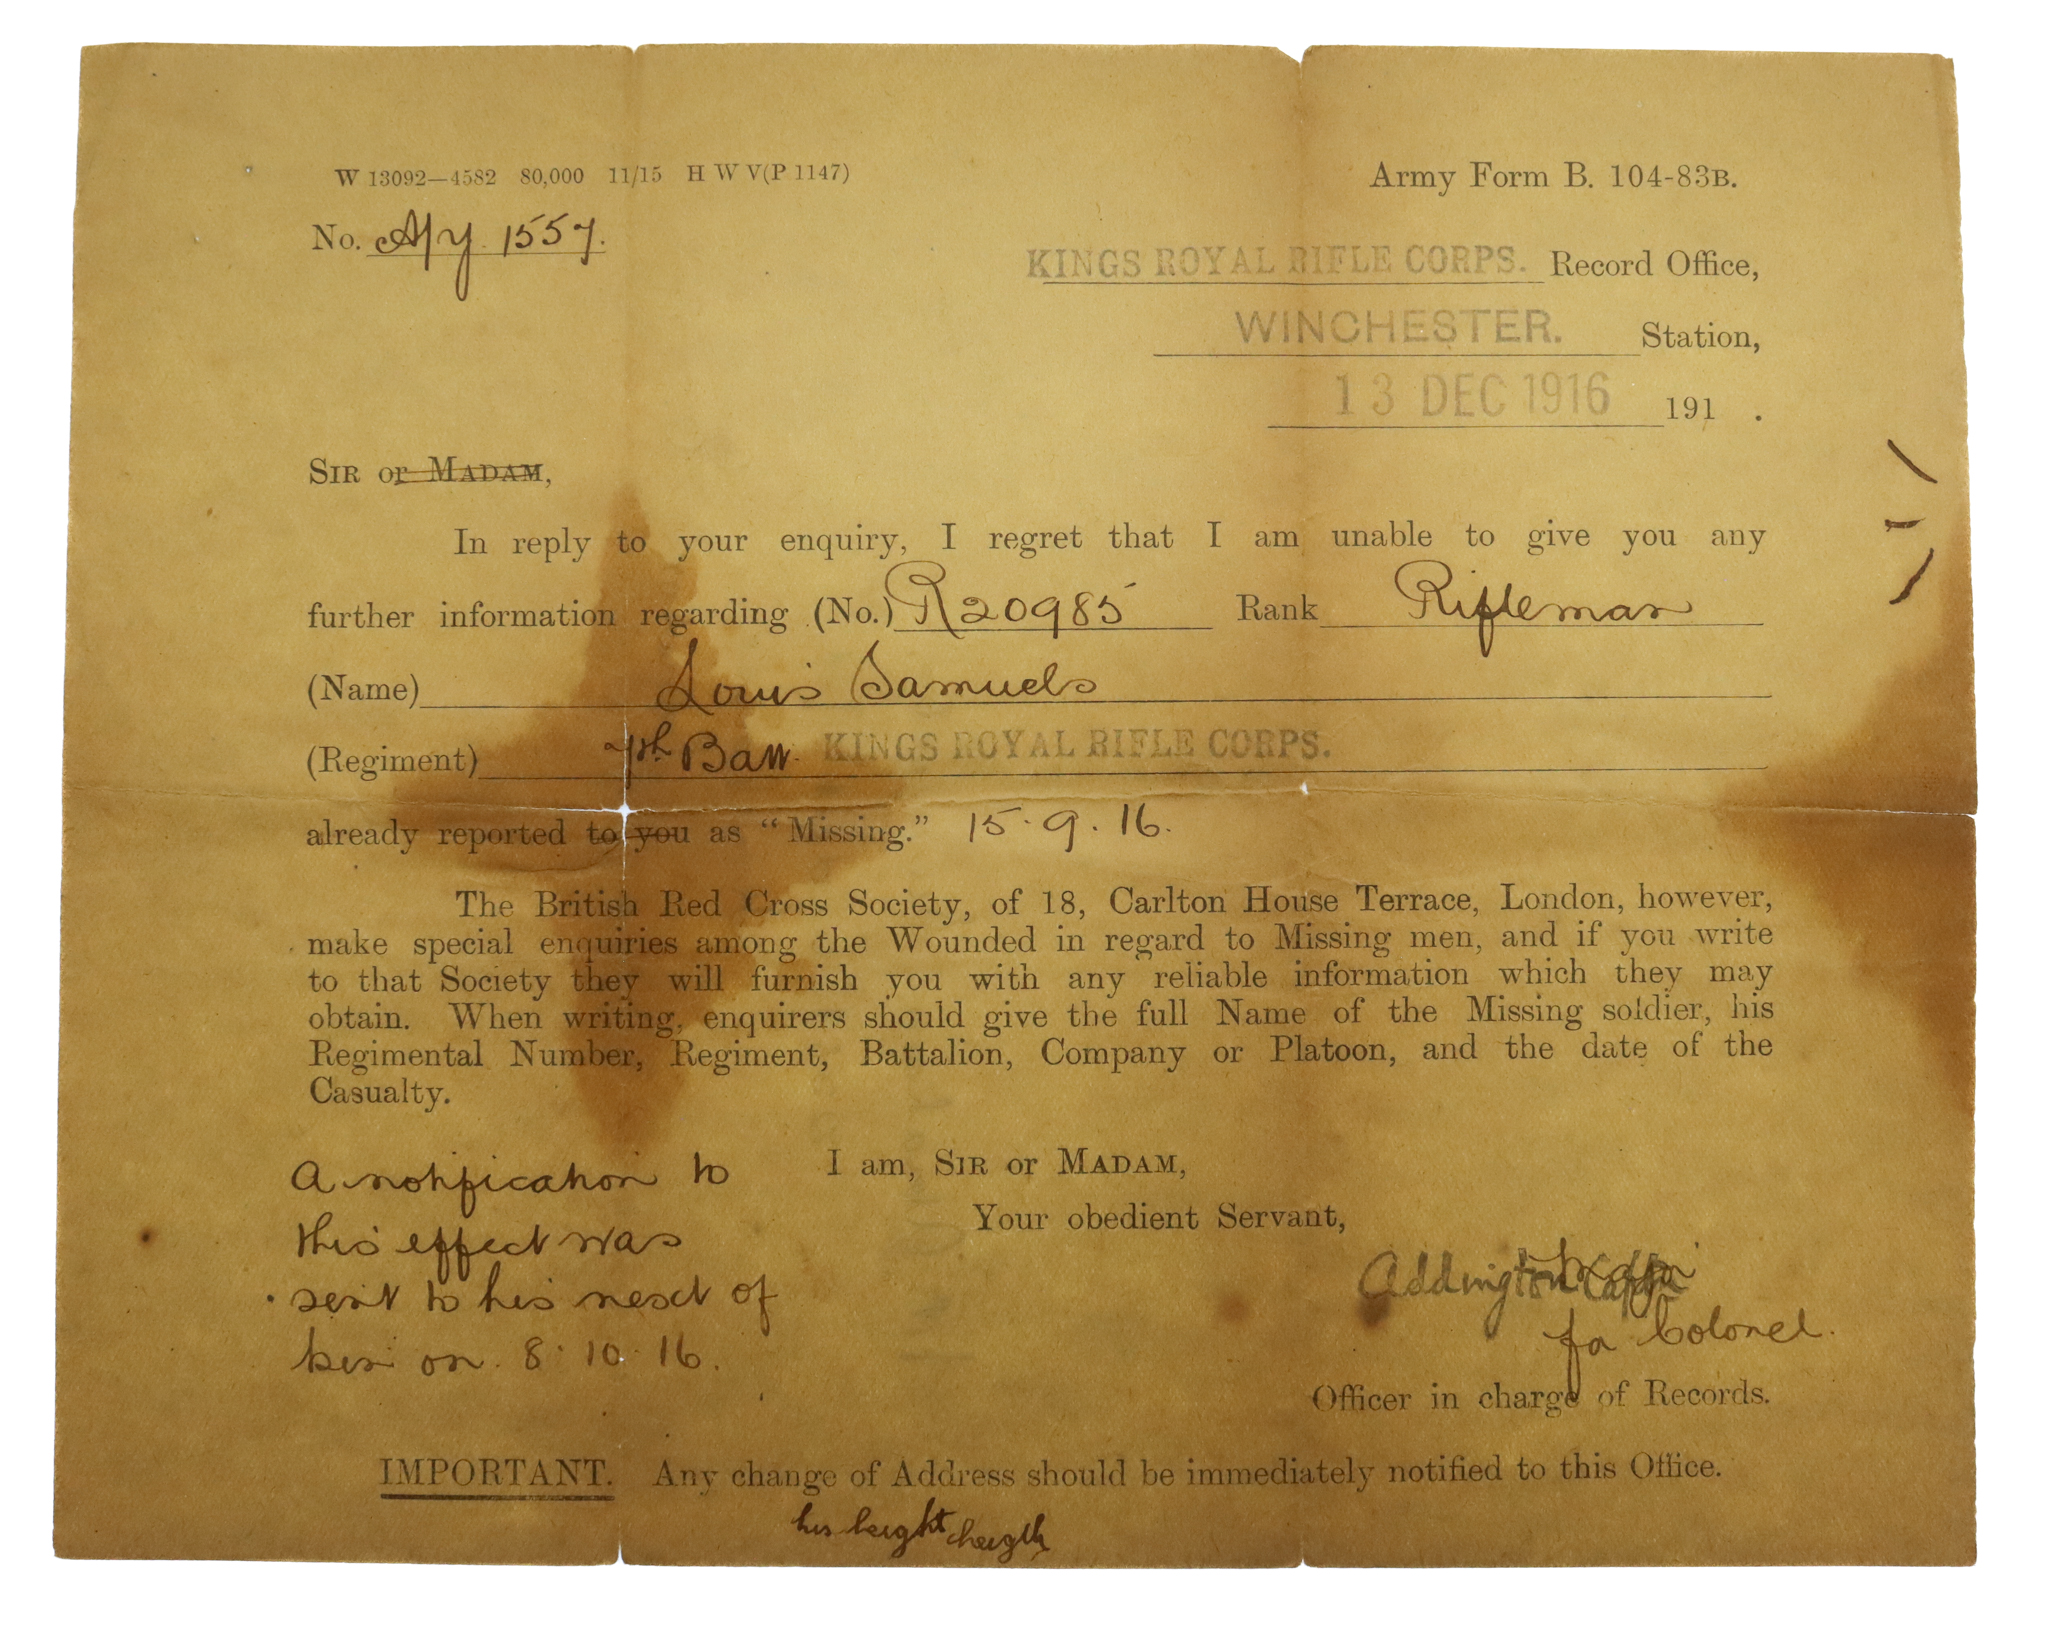 W 13092—4582 80,000 11/15 H W V(P 1147)
Army Form B. 104-83B.
No. A/y. 1557.
KINGS ROYAL RIFLE CORPS. Record Office,
WINCHESTER. Station,
13 DEC 1916 191 .
SIR or MADAM,
In reply to your enquiry, I regret that I am unable to give you any
further information regarding (No.) R20985 Rank Rifleman
(Name) Louis Samuels
(Regiment) 7th Batt. KINGS ROYAL RIFLE CORPS.
already reported to you as "Missing." 15.9.16.
The British Red Cross Society, of 18, Carlton House Terrace, London, however,
make special enquiries among the Wounded in regard to Missing men, and if you write
to that Society they will furnish you with any reliable information which they may
obtain. When writing, enquirers should give the full Name of the Missing soldier, his
Regimental Number, Regiment, Battalion, Company or Platoon, and the date of the
Casualty.
I am, SIR or MADAM,
Your obedient Servant,
A notification to
this effect was
sent to his next of
kin on. 8.10.16.
Addington
for Colonel.
Officer in charge of Records.
IMPORTANT. Any change of Address should be immediately notified to this Office.
his height